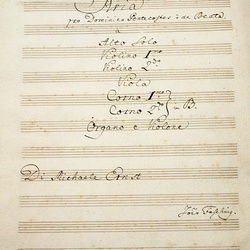 Aria
pro Dominica Pentecostes i de Beata.
a
Alto Solo
Violino 1mo
Violino 2do
Viola
Corno 1mo
Corno 2do } in B.
Organo e Violone
Di Michaele Ernst